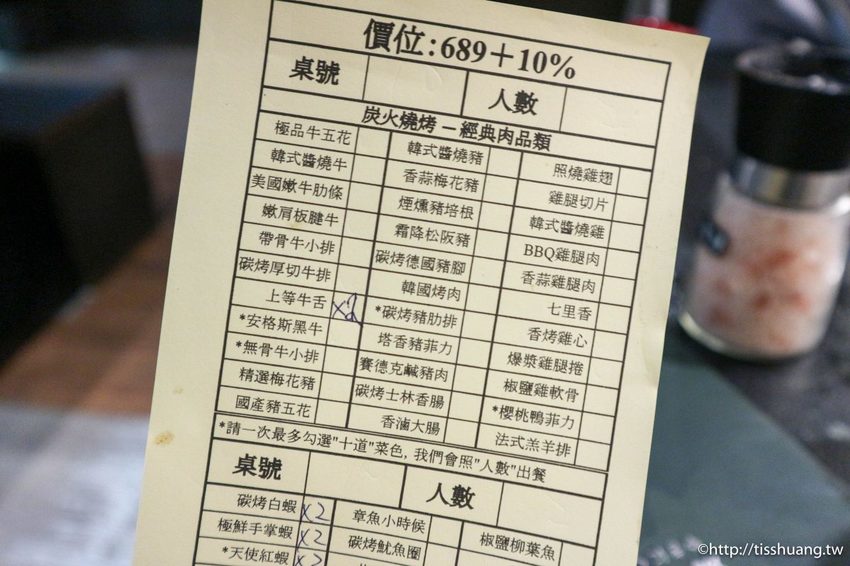 價位:689+10%
桌號 人數
炭火燒烤 - 經典肉品類
極品牛五花 韓式醬燒豬 照燒雞翅
韓式醬燒牛 香蒜梅花豬 雞腿切片
美國嫩牛肋條 煙燻豬培根 韓式醬燒雞
嫩肩板腱牛 霜降松阪豬 BBQ雞腿肉
帶骨牛小排 碳烤德國豬腳 香蒜雞腿肉
碳烤厚切牛排 韓國烤肉 七里香
上等牛舌 x2 *碳烤豬肋排 香烤雞心
*安格斯黑牛 塔香豬菲力 爆漿雞腿捲
*無骨牛小排 賽德克鹹豬肉 椒鹽雞軟骨
精選梅花豬 碳烤士林香腸 *櫻桃鴨菲力
國產豬五花 香滷大腸 法式羔羊排
*請一次最多勾選"十道"菜色, 我們會照"人數"出餐
桌號 人數
碳烤白蝦 x2 章魚小時候 椒鹽柳葉魚
極鮮手掌蝦 x2 碳烤魷魚圈
*天使紅蝦 x2
©http://tisshuang.tw